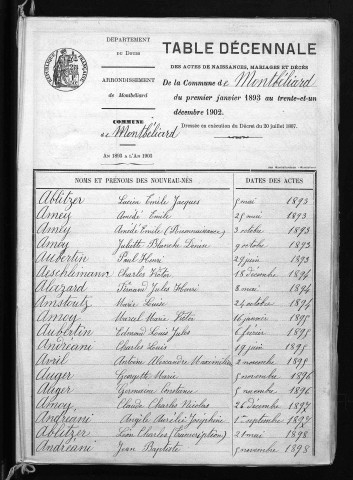 DÉPARTEMENT
DU DOUBS
ARRONDISSEMENT
de Montbéliard
COMMUNE
de Montbéliard
An 1893 à l'An 1903
TABLE DÉCENNALE
DES ACTES DE NAISSANCES, MARIAGES ET DÉCÈS
De la Commune de Montbéliard
du premier janvier 1893 au trente-et-un
décembre 1902.
Dressée en exécution du Décret du 20 juillet 1807.
NOMS ET PRÉNOMS DES NOUVEAU-NÉS DATES DES ACTES
Ablitzer Lucien Emile Jacques 5 mai 1893
Amey Amedé Emile 25 mai 1893
Amey Amedé Emile (Reconnaissance) 3 octobre 1893
Amey Juliette Blanche 9 octobre 1893
Aubertin Paul Henri 29 juin 1893
Aeschlimann Charles Victor 18 décembre 1894
Fernand Jules Henri 8 mai 1894
Amstoutz Marie Louise 24 octobre 1894
Marcel Marie Victor 16 janvier 1895
Aubertin Edmond Louis Jules 6 février 1895
Andréani Charles Louis 19 juin 1895
Avril Antoine Alexandre Maximilien 2 novembre 1895
Auger Georgette Marie 5 novembre 1896
Auger Germaine Constance 5 novembre 1896
Claude Charles Nicolas 26 décembre 1897
Andréani Angèle Aurélie Joséphine 1er septembre 1897
Ablitzer Léon Charles (Transcription) 21 mai 1898
Andréani Jean Baptiste 5 novembre 1898